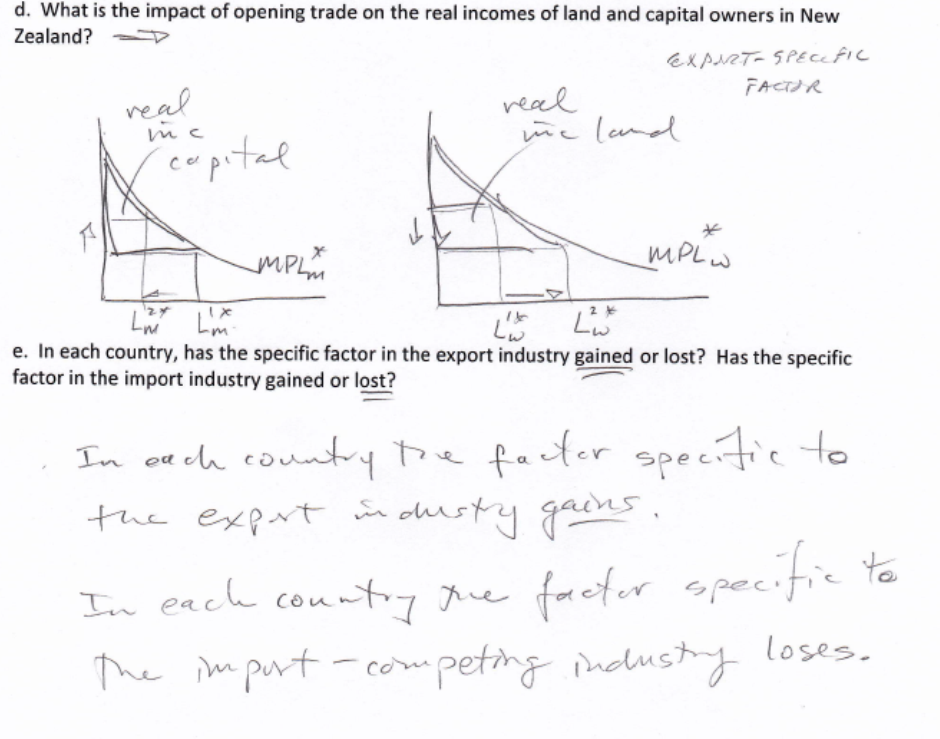 d. What is the impact of opening trade on the real incomes of land and capital owners in New
Zealand?
EXPORT-SPECIFIC
FACTOR
real
inc
capital
real
inc land
MPLm*
MPLw*
Lm2* Lm1*
Lw1* Lw2*
e. In each country, has the specific factor in the export industry gained or lost? Has the specific
factor in the import industry gained or lost?
In each country the factor specific to
the export industry gains.
In each country the factor specific to
the import-competing industry loses.